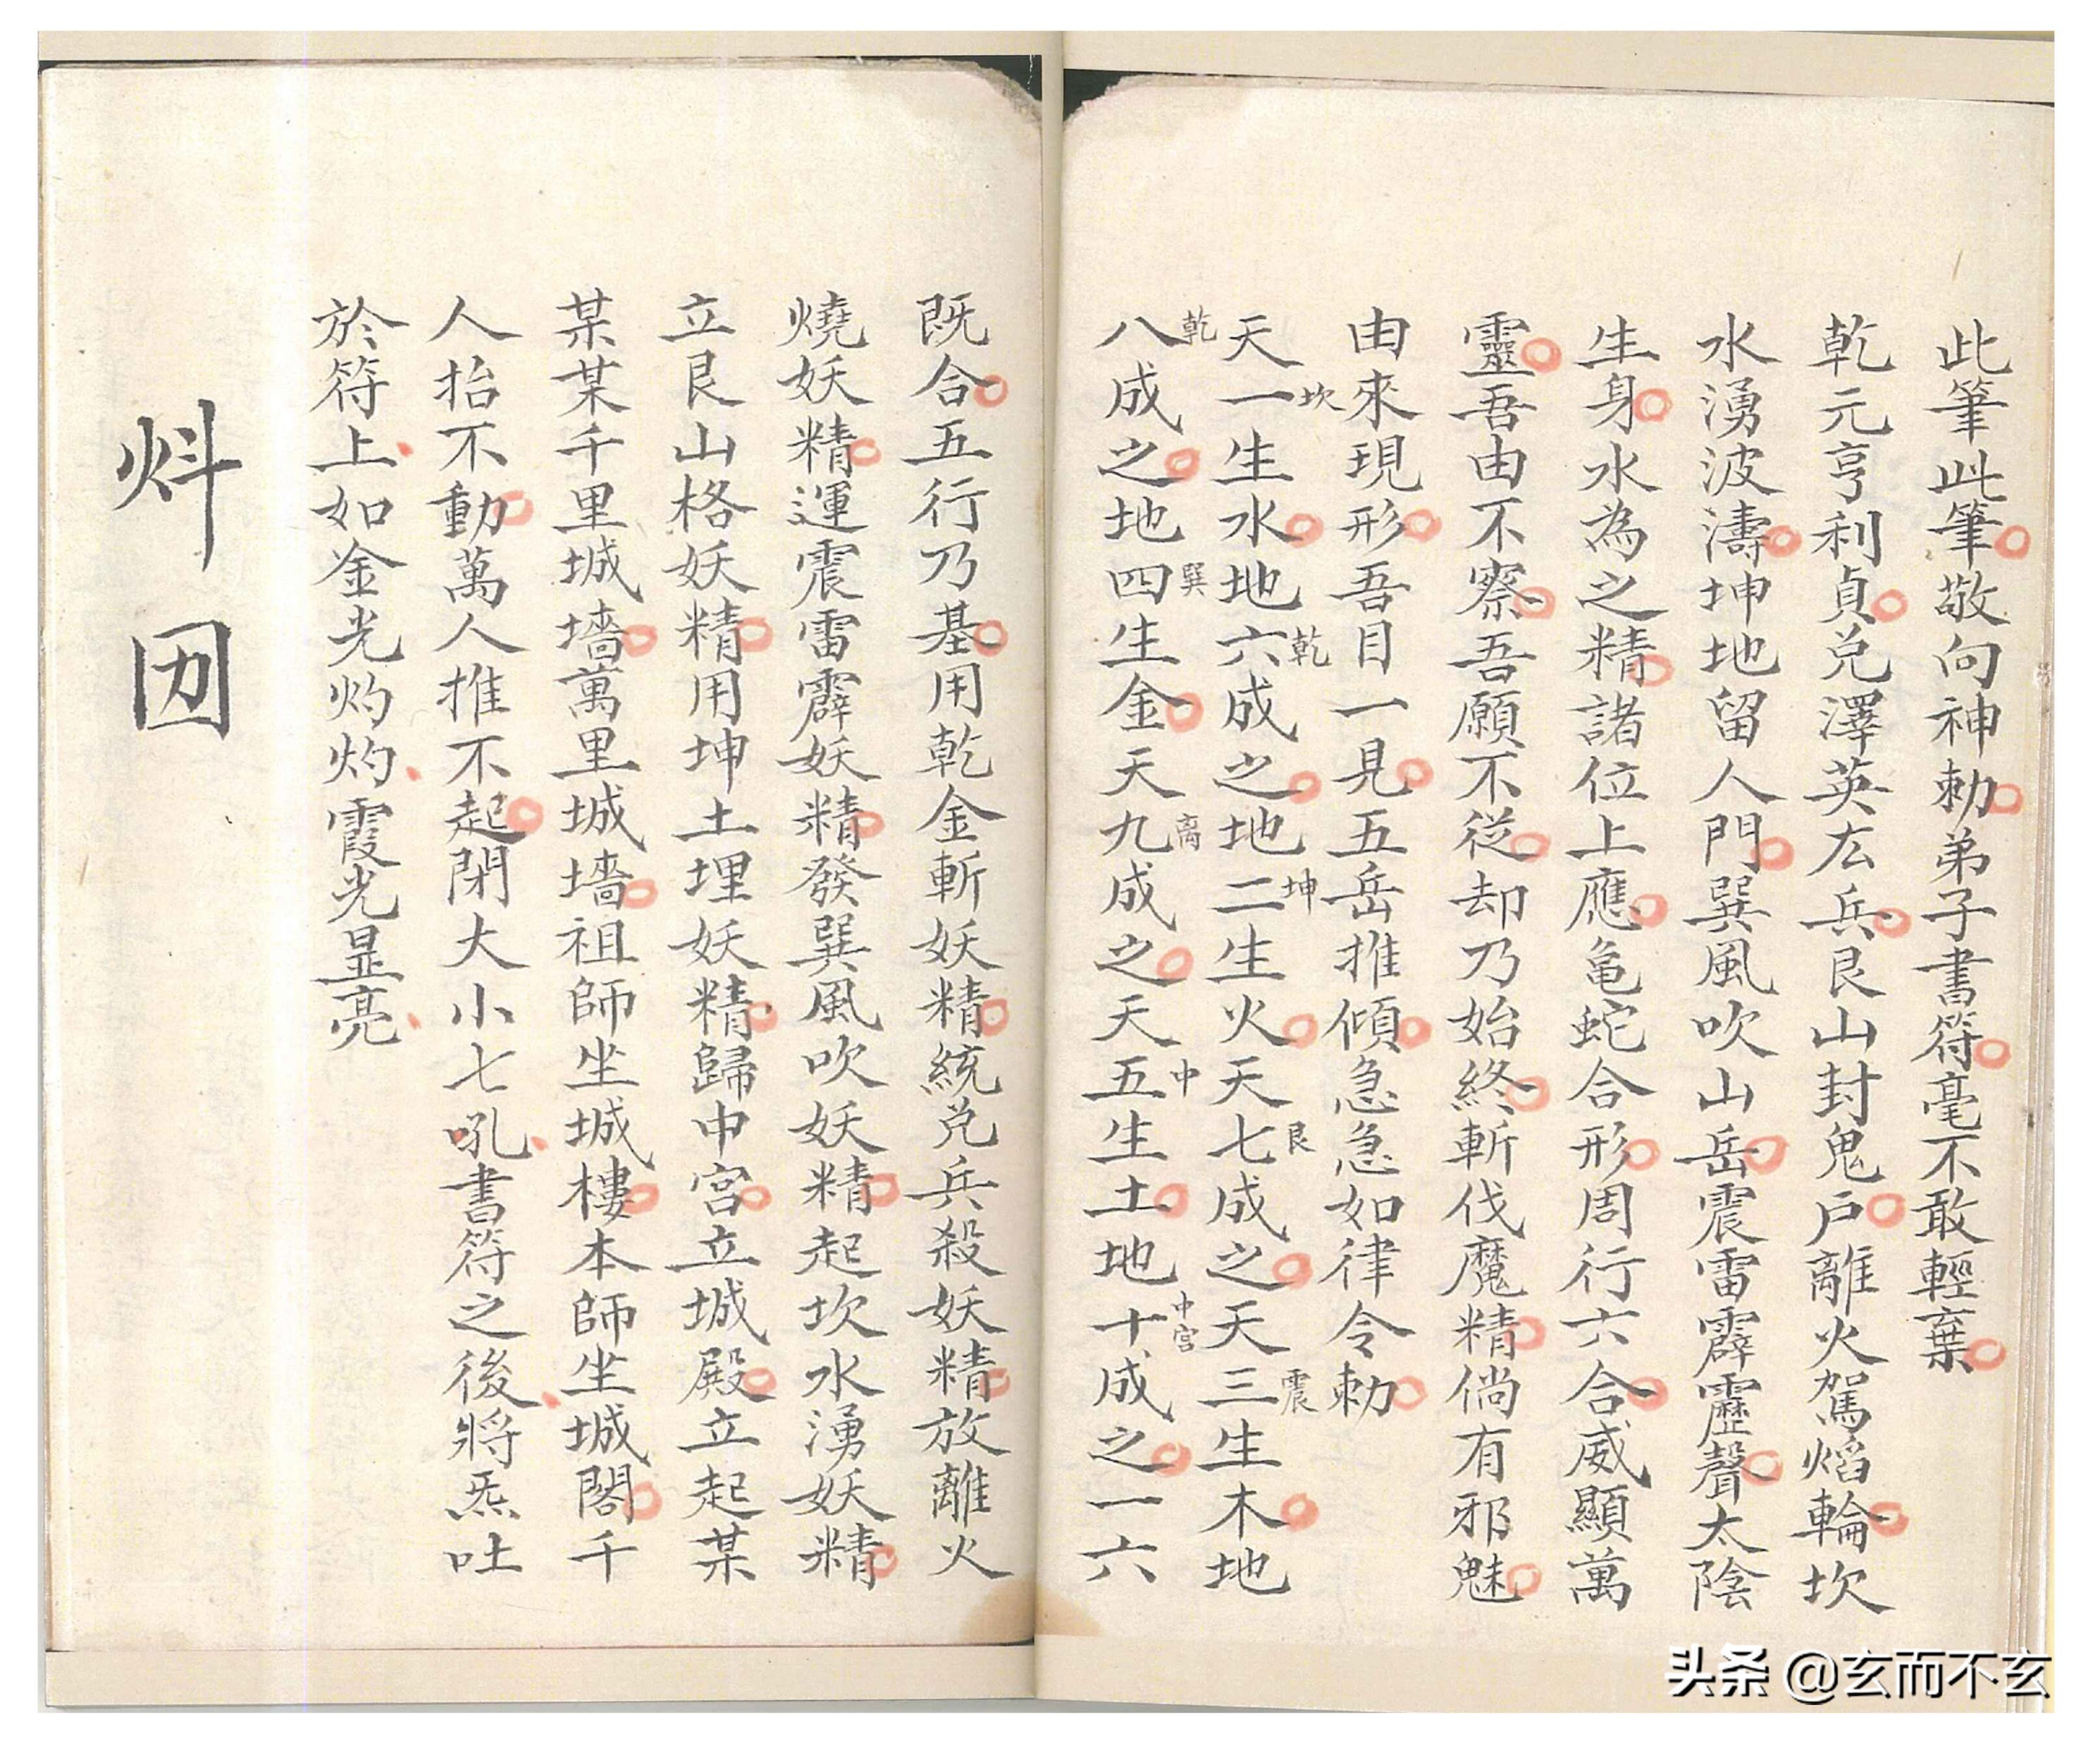 此筆此筆敬向神勅弟子書符毫不敢輕棄
乾元亨利貞兑澤英厷兵艮山封鬼户離火駕熖輪坎
水湧波濤坤地留人門巽風吹山岳震雷霹靂聲太陰
生身水為之精諸位上應亀蛇合形周行六合威顯萬
靈吾由不察吾願不從却乃始終斬伐魔精倘有邪魅
由來現形吾目一見五岳推傾急急如律令勅
天一生水地六成之地二生火天七成之天三生木地
坎 乾 坤 艮 震
八成之地四生金天九成之天五生土地十成之一六
乾 巽 离 中 中宮
既合五行乃基用乾金斬妖精統兑兵殺妖精放離火
燒妖精運震雷霹妖精發巽風吹妖精起坎水湧妖精
立艮山格妖精用坤土埋妖精歸中宮立城殿立起某
某某千里城墻萬里城墻祖師坐城樓本師坐城閣千
人抬不動萬人推不起閉大小七吼書符之後將炁吐
於符上如金光灼灼霞光显亮
头条 @玄而不玄